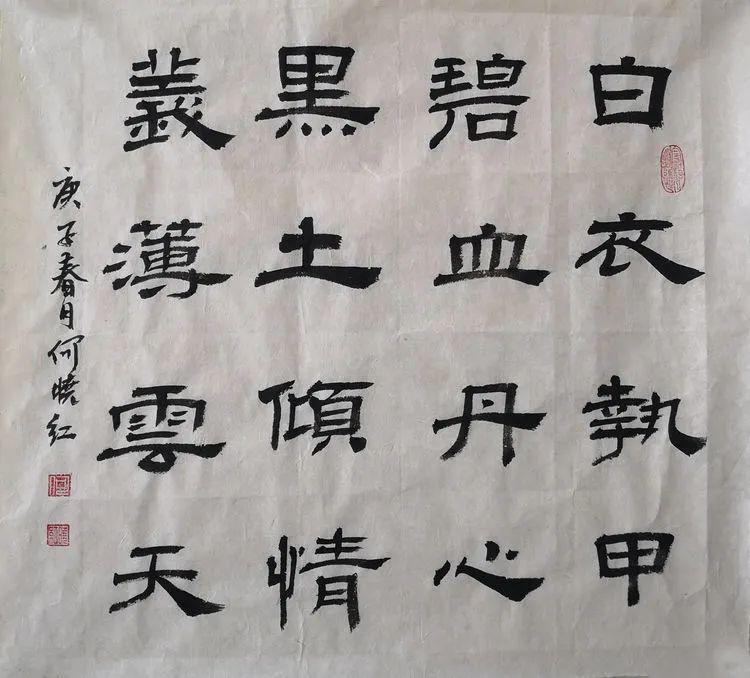 白衣執甲
碧血丹心
黑土傾情
義薄雲天
庚子春月何曉紅